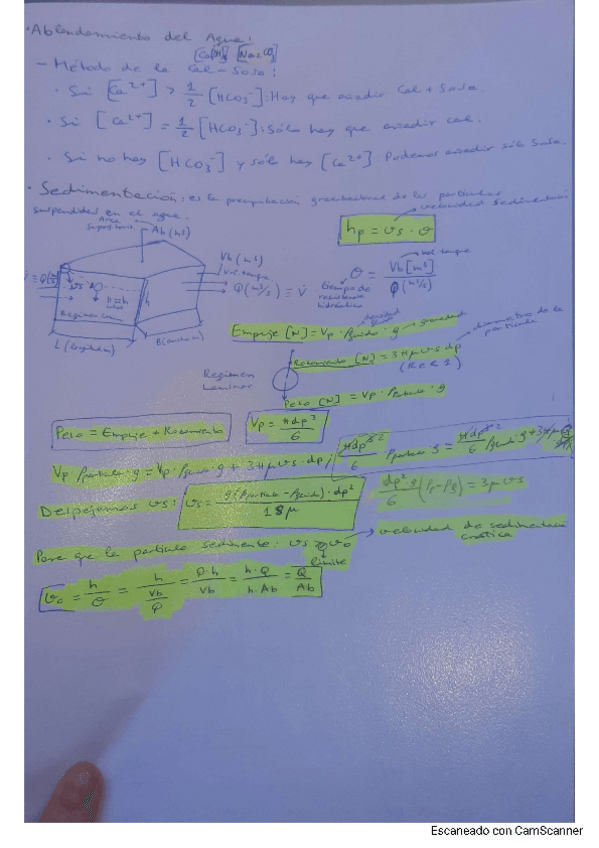 · Ablandamiento del Agua:
[Ca(OH)₂] [Na₂CO₃]
- Método de la Cal-Sosa:
· Si [Ca²⁺] > 1/2 [HCO₃⁻]: Hay que añadir Cal + Sosa.
· Si [Ca²⁺] = 1/2 [HCO₃⁻]: Sólo hay que añadir cal.
· Si no hay [HCO₃⁻] y sólo hay [Ca²⁺]: Podemos añadir sólo Sosa.
· Sedimentación: es la precipitación de las partículas
suspendidas en el agua.
velocidad sedimentación
hp = vs · θ
Área
superficial
Ab (m²)
Vb (m³)
vol. tanque
Q (m³/s) = V̇
vs
H = h
Régimen Laminar
h
L (longitud)
B (anchura)
θ = Vb [m³] / Q (m³/s)
vol. tanque
tiempo de
residencia
hidráulico
Empuje [N] = Vp · ρfluido · g → gravedad
densidad
fluido
Rozamiento [N] = 3πμ vs dp
diámetro de la
partícula
(Re < 1)
Régimen
Laminar
Peso [N] = Vp · ρpartícula · g
Peso = Empuje + Rozamiento
Vp = πdp³/6
Vp ρpartícula · g = Vp · ρfluido · g + 3πμ vs · dp;
πdp³/6 ρpartícula · g = πdp³/6 ρfluido · g + 3πμ
Despejamos vs: vs = g(ρpartícula - ρfluido) · dp² / 18μ
dp² · g/6 (ρp - ρf) = 3μ vs
Para que la partícula sedimente: vs ≥ v₀
velocidad de sedimentación
crítica
límite
v₀ = h/θ = h/(Vb/Q) = Q·h/Vb = h·Q/h·Ab = Q/Ab
Escaneado con CamScanner